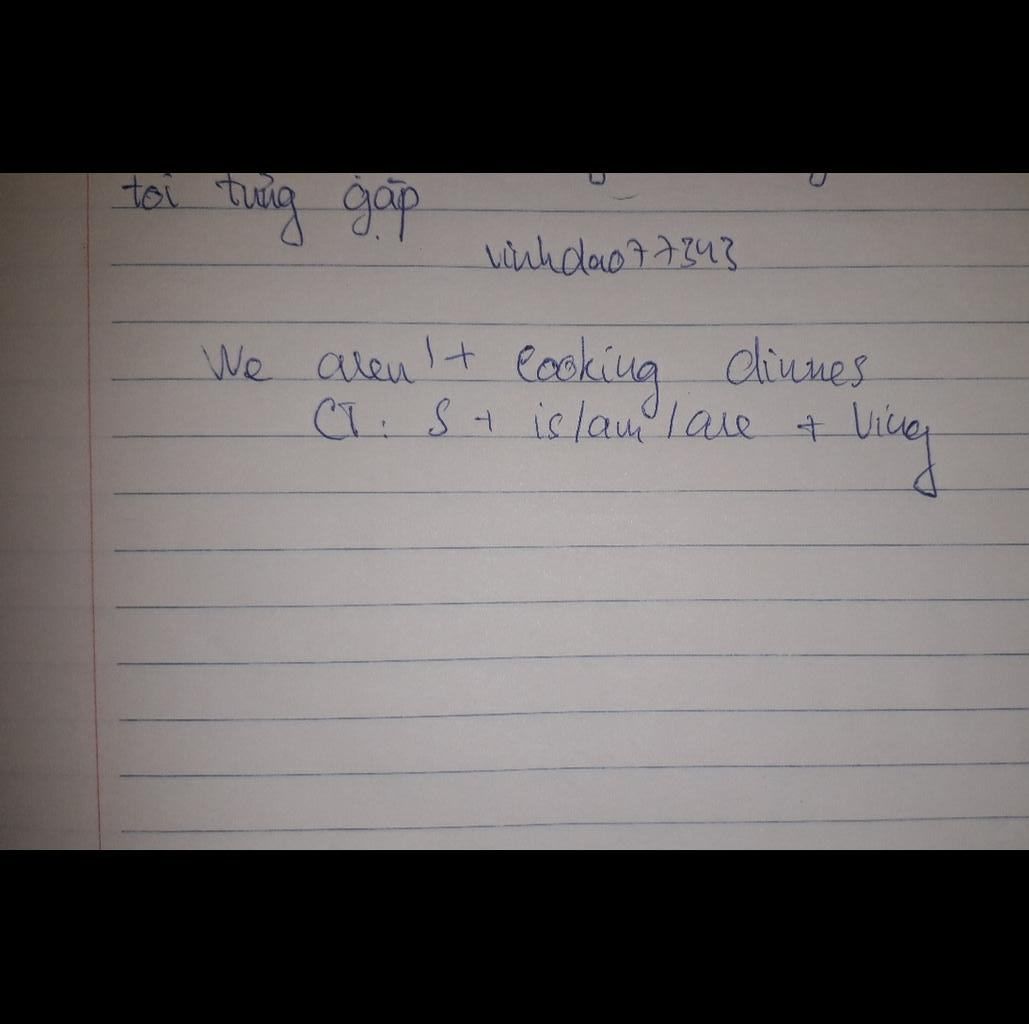 tôi từng gặp
vinhdao77343
We aren't cooking dinner
CT: S + is/am/are + Ving